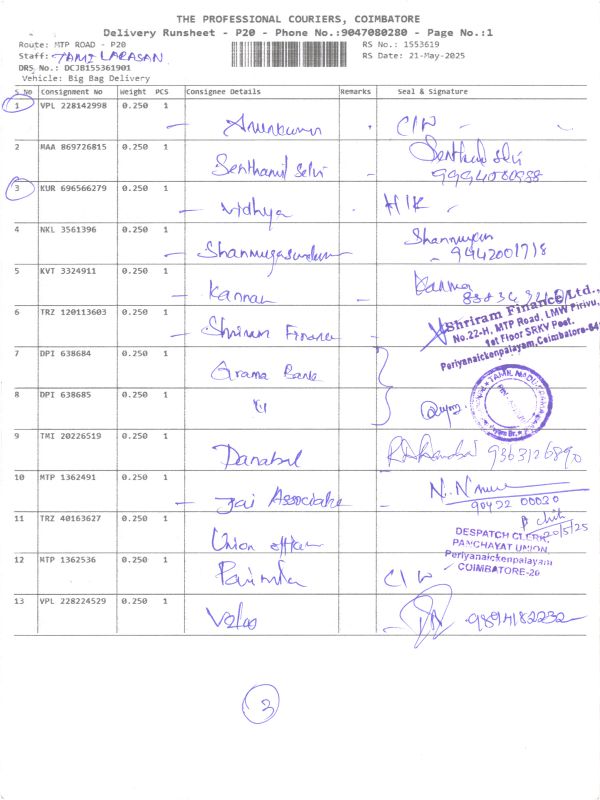 THE PROFESSIONAL COURIERS, COIMBATORE
Delivery Runsheet - P20 - Phone No.:9047080280 - Page No.:1
Route: MTP ROAD - P20
RS No.: 1553619
Staff: TAMILARASAN
RS Date: 21-May-2025
DRS No.: DCJB155361901
Vehicle: Big Bag Delivery
S.No Consignment No Weight PCS Consignee Details Remarks Seal & Signature
1 VPL 228142998 0.250 1
Arunkumar
2 MAA 869726815 0.250 1
Senthamil Selvi Senthamil Selvi
3 KUR 696566279 0.250 1
Vidhya
4 NKL 3561396 0.250 1
Shanmugasundaram
9442001718
5 KVT 3324911 0.250 1
Kannan
6 TRZ 120113603 0.250 1
Shriram Finance
Shriram Finance Ltd.,
No.22-H, MTP Road, LMW Pirivu,
1st Floor SRKV Post,
Periyanaickenpalayam, Coimbatore-641
7 DPI 638684 0.250 1
Grama Bank
8 DPI 638685 0.250 1
"
9 TMI 20226519 0.250 1
Danabal 9363126890
10 MTP 1362491 0.250 1
Jai Associate
90422 00020
11 TRZ 40163627 0.250 1
Union officer
20/5/25
DESPATCH CLERK,
PANCHAYAT UNION,
Periyanaickenpalayam
COIMBATORE-20
12 MTP 1362536 0.250 1
13 VPL 228224529 0.250 1
9894182232
3